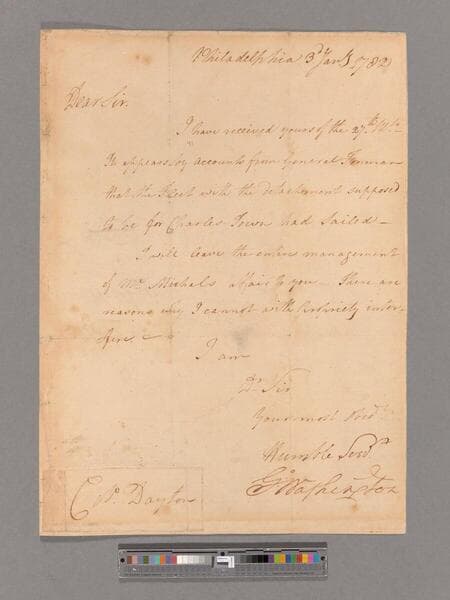 Philadelphia 3d Jany 1782
Dear Sir.
I have received yours of the 27th Ulto
It appears by accounts from General Forman
that the Fleet with the detachment supposed
to be for Charles Town had sailed –
I will leave the entire management
of Mr Michals affair to you – There are
reasons why I cannot with propriety inter-
fere. –
I am
Dr Sir
Your most Obedt
Humble Servt
Go Washington
Colo. Dayton